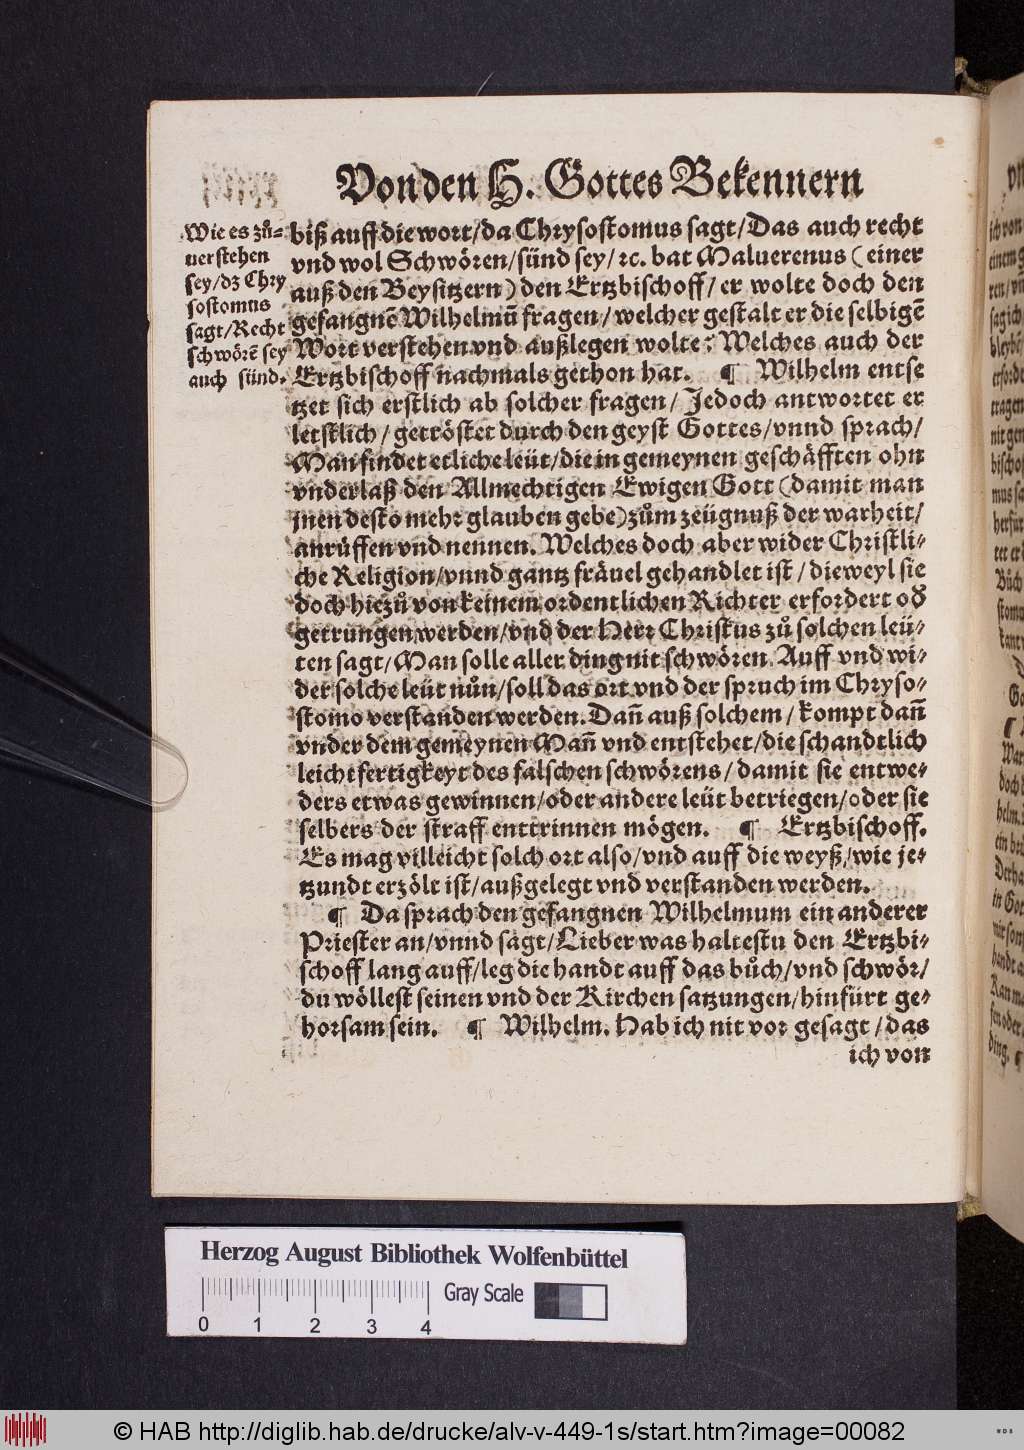 Von den H. Gottes Bekennern
Wie es zů-
uerstehen
sey/dz Chry
sostomus
sagt/Recht
schwörē sey
auch sünd.
biß auff die wort/da Chrysostomus sagt/Das auch recht
vnd wol Schwören/sünd sey/ꝛc. bat Maluerenus (einer
auß den Beysitzern) den Ertzbischoff/er wolte doch den
gefangnē Wilhelmū fragen/welcher gestalt er die selbigē
Wort verstehen vnd außlegen wolte: Welches auch der
Ertzbischoff nachmals gethon hat. ¶ Wilhelm entse
tzet sich erstlich ab solcher fragen/Jedoch antwortet er
letstlich/getröstet durch den geyst Gottes/vnnd sprach/
Man findet etliche leüt/die in gemeynen geschäfften ohn
vnderlaß den Allmechtigen Ewigen Gott (damit man
jnen desto mehr glauben gebe) zům zeügnuß der warheit/
anrüffen vnd nennen. Welches doch aber wider Christli-
che Religion/vnnd gantz fräuel gehandlet ist/dieweyl sie
doch hiezů von keinem ordentlichen Richter erfordert od
getrungen werden/vnd der Herr Christus zů solchen leü-
ten sagt/Man solle aller ding nit schwören. Auff vnd wi-
der solche leüt nůn/soll das ort vnd der spruch im Chryso-
stomo verstanden werden. Dañ auß solchem/kompt dañ
vnder dem gemeynen Mañ vnd entstehet/die schandtlich
leichtfertigkeyt des falschen schwörens/damit sie entwe-
ders etwas gewinnen/oder andere leüt betriegen/oder sie
selbers der straff enttrinnen mögen. ¶ Ertzbischoff.
Es mag villeicht solch ort also/vnd auff die weyß/wie je-
tzundt erzölt ist/außgelegt vnd verstanden werden.
¶ Da sprach den gefangnen Wilhelmum ein anderer
Priester an/vnnd sagt/Lieber was haltestu den Ertzbi-
schoff lang auff/leg die handt auff das bůch/vnd schwör/
du wöllest seinen vnd der Kirchen satzungen/hinfürt ge-
horsam sein. ¶ Wilhelm. Hab ich nit vor gesagt/das
ich von
Herzog August Bibliothek Wolfenbüttel
Gray Scale
0 1 2 3 4
© HAB http://diglib.hab.de/drucke/alv-v-449-1s/start.htm?image=00082